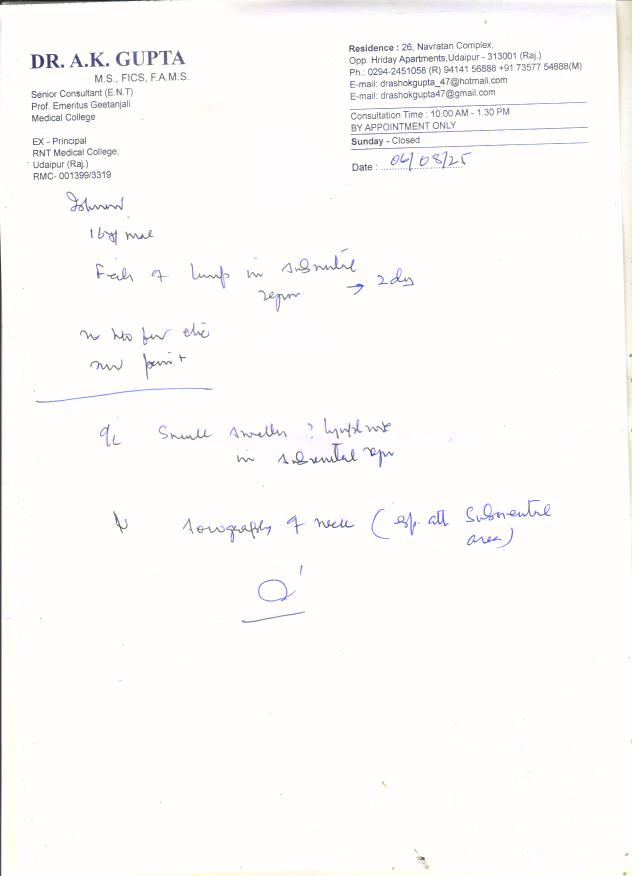 DR. A.K. GUPTA
M.S., FICS, F.A.M.S.
Senior Consultant (E.N.T)
Prof. Emeritus Geetanjali
Medical College
EX - Principal
RNT Medical College,
Udaipur (Raj.)
RMC- 001399/3319
Residence : 26, Navratan Complex,
Opp. Hriday Apartments,Udaipur - 313001 (Raj.)
Ph.: 0294-2451058 (R) 94141 56888 +91 73577 54888(M)
E-mail: drashokgupta_47@hotmail.com
E-mail: drashokgupta47@gmail.com
Consultation Time : 10.00 AM - 1.30 PM
BY APPOINTMENT ONLY
Sunday - Closed
Date : 06/08/25
male
Feels of lump in submental
region → 2 day
no
Small swelling ? lymph node
in submental region
sonography of neck (esp. att submental
area)